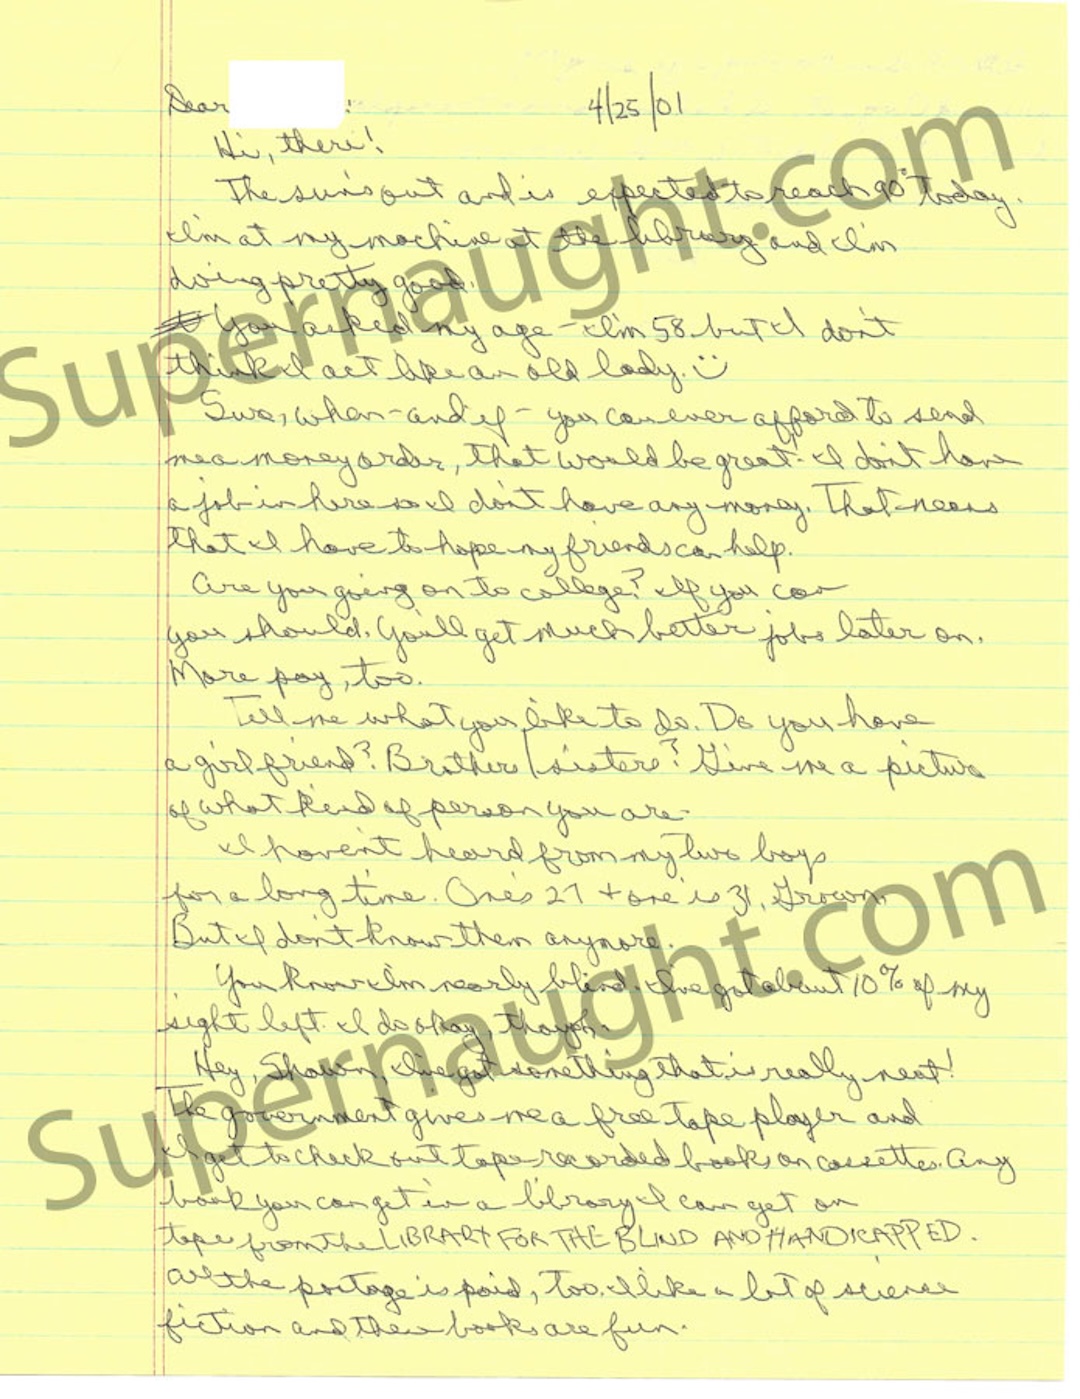 Dear : 4/25/01
Hi, there!
The sun's out and is expected to reach 90° today.
I'm at my machine at the library and I'm
doing pretty good.
You asked my age - I'm 58 but I don't
think I act like an old lady.
Sure, when - and if - you can ever afford to send
me a money order, that would be great. I don't have
a job in here so I don't have any money. That means
that I have to hope my friends can help.
Are you going on to college? If you can
you should. You'll get much better jobs later on.
More pay, too.
Tell me what you like to do. Do you have
a girlfriend? Brothers/sisters? Give me a picture
of what kind of person you are.
I haven't heard from my two boys
for a long time. One's 27 + one is 31, Grown.
But I don't know them anymore.
You know I'm nearly blind. I've got about 10% of my
sight left. I do okay, though.
Hey, Shawn, I've got something that is really neat!
The government gives me a free tape player and
I get to check out tape recorded books on cassettes. Any
book you can get in a library I can get on
tape from the LIBRARY FOR THE BLIND AND HANDICAPPED.
All the postage is paid, too. I like a lot of science
fiction and these books are fun.
Supernaught.com
Supernaught.com